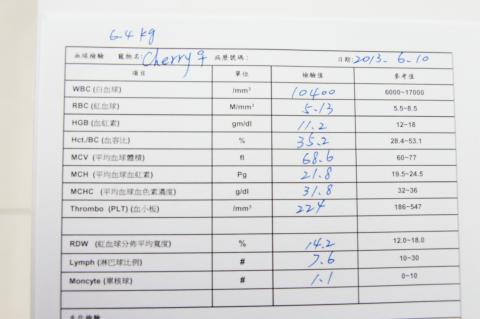 6.4 kg
血球檢驗 寵物名: Cherry ♀ 病歷號碼: 日期: 2013. 6. 10
項目 單位 檢驗值 參考值
WBC (白血球) /mm³ 10400 6000~17000
RBC (紅血球) M/mm³ 5.13 5.5~8.5
HGB (血紅素) gm/dl 11.2 12~18
Hct./BC (血容比) % 35.2 28.4~53.1
MCV (平均血球體積) fl 68.6 60~77
MCH (平均血球血紅素) Pg 21.8 19.5~24.5
MCHC (平均血球血色素濃度) g/dl 31.8 32~36
Thrombo (PLT) (血小板) /mm³ 224 186~547
RDW (紅血球分佈平均寬度) % 14.2 12.0~18.0
Lymph (淋巴球比例) # 7.6 10~30
Moncyte (單核球) # 1.1 0~10
生化檢驗